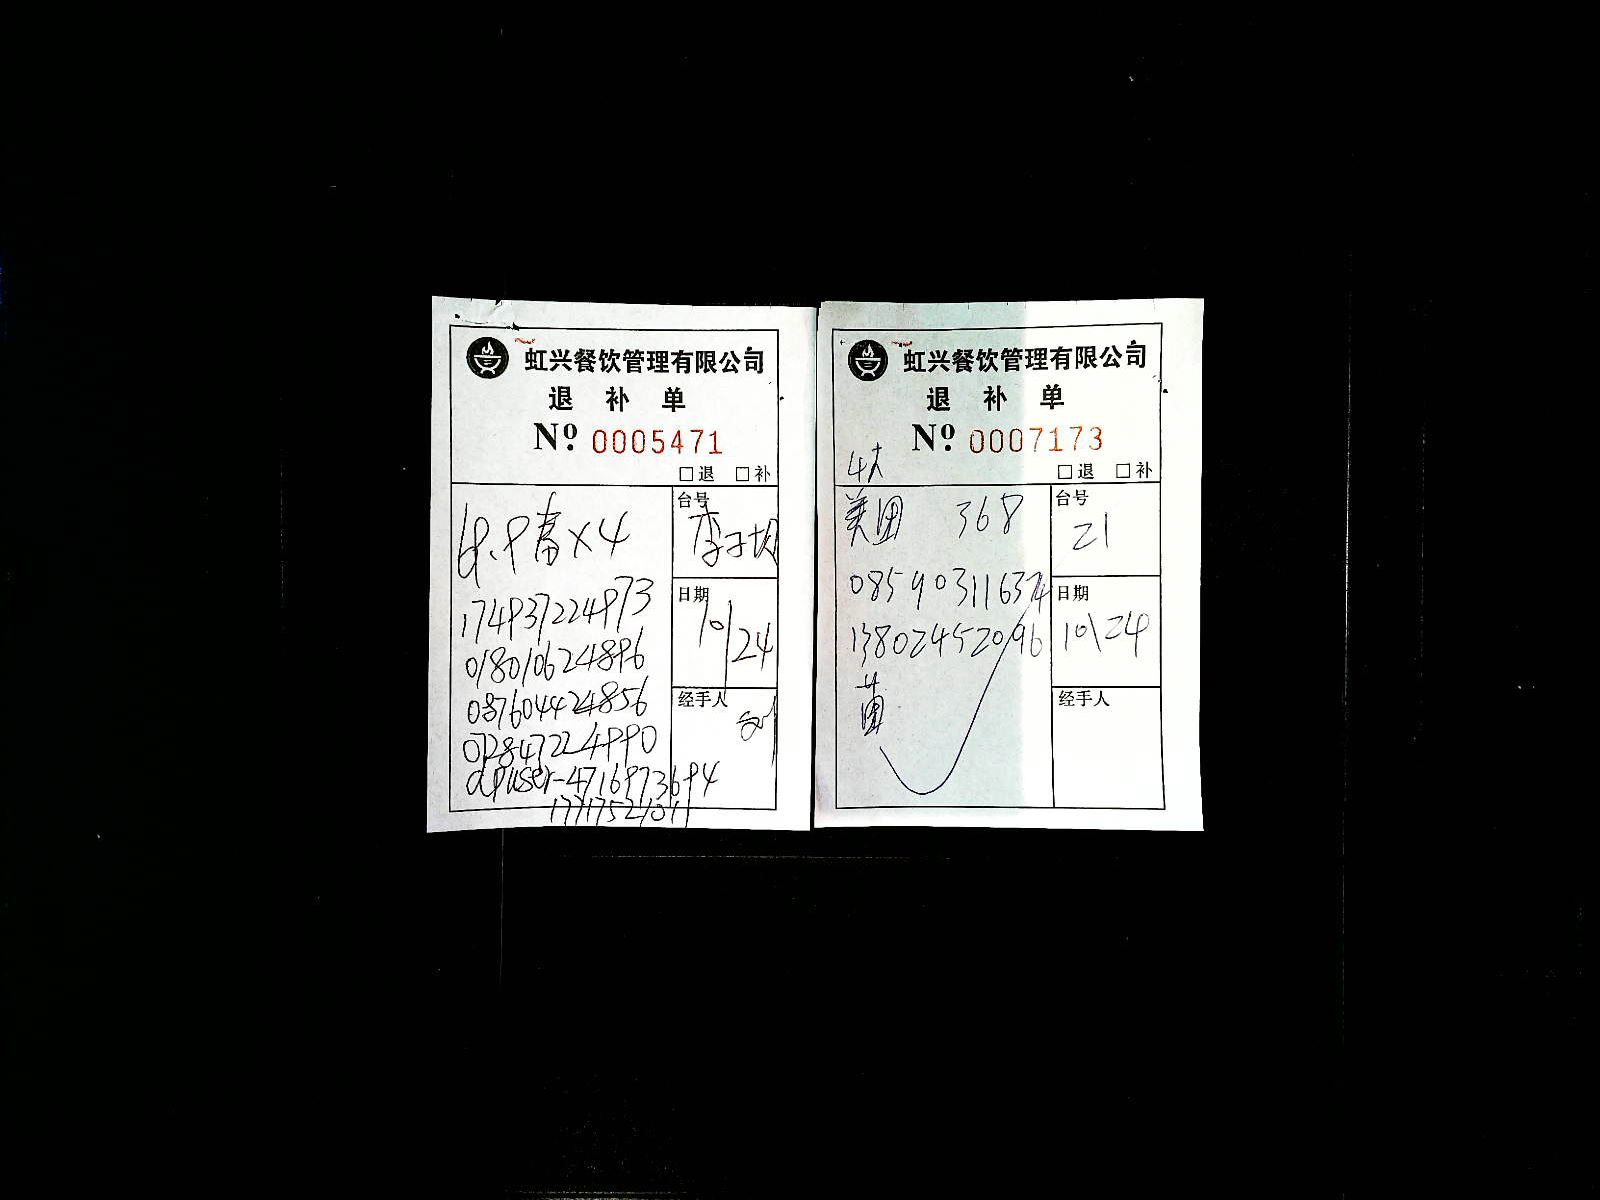 虹兴餐饮管理有限公司
退 补 单
Nº 0005471
□退 □补
×4
174937224973
018010624896
087604424856
072847224990
dpuser-4716973694
17717521011
台号
李子坝
日期
10/24
经手人
虹兴餐饮管理有限公司
退 补 单
Nº 0007173
□退 □补
4大
美团 368
085903116374
13802452096
台号
21
日期
10\24
经手人